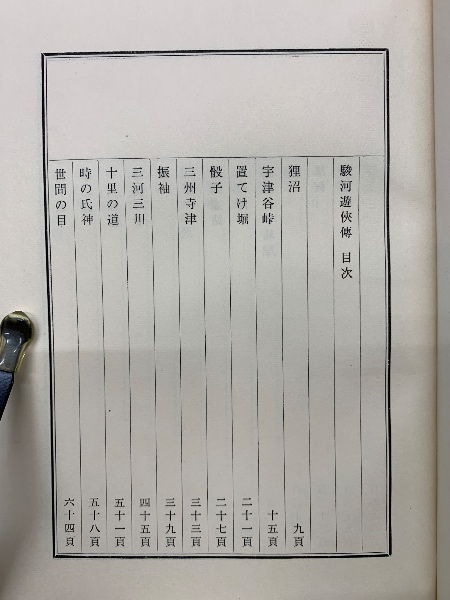 駿河遊俠傳 目次
狸沼 九頁
宇津谷峠 十五頁
置てけ堀 二十一頁
骰子 二十七頁
三州寺津 三十三頁
振袖 三十九頁
三河三川 四十五頁
十里の道 五十一頁
時の氏神 五十八頁
世間の目 六十四頁